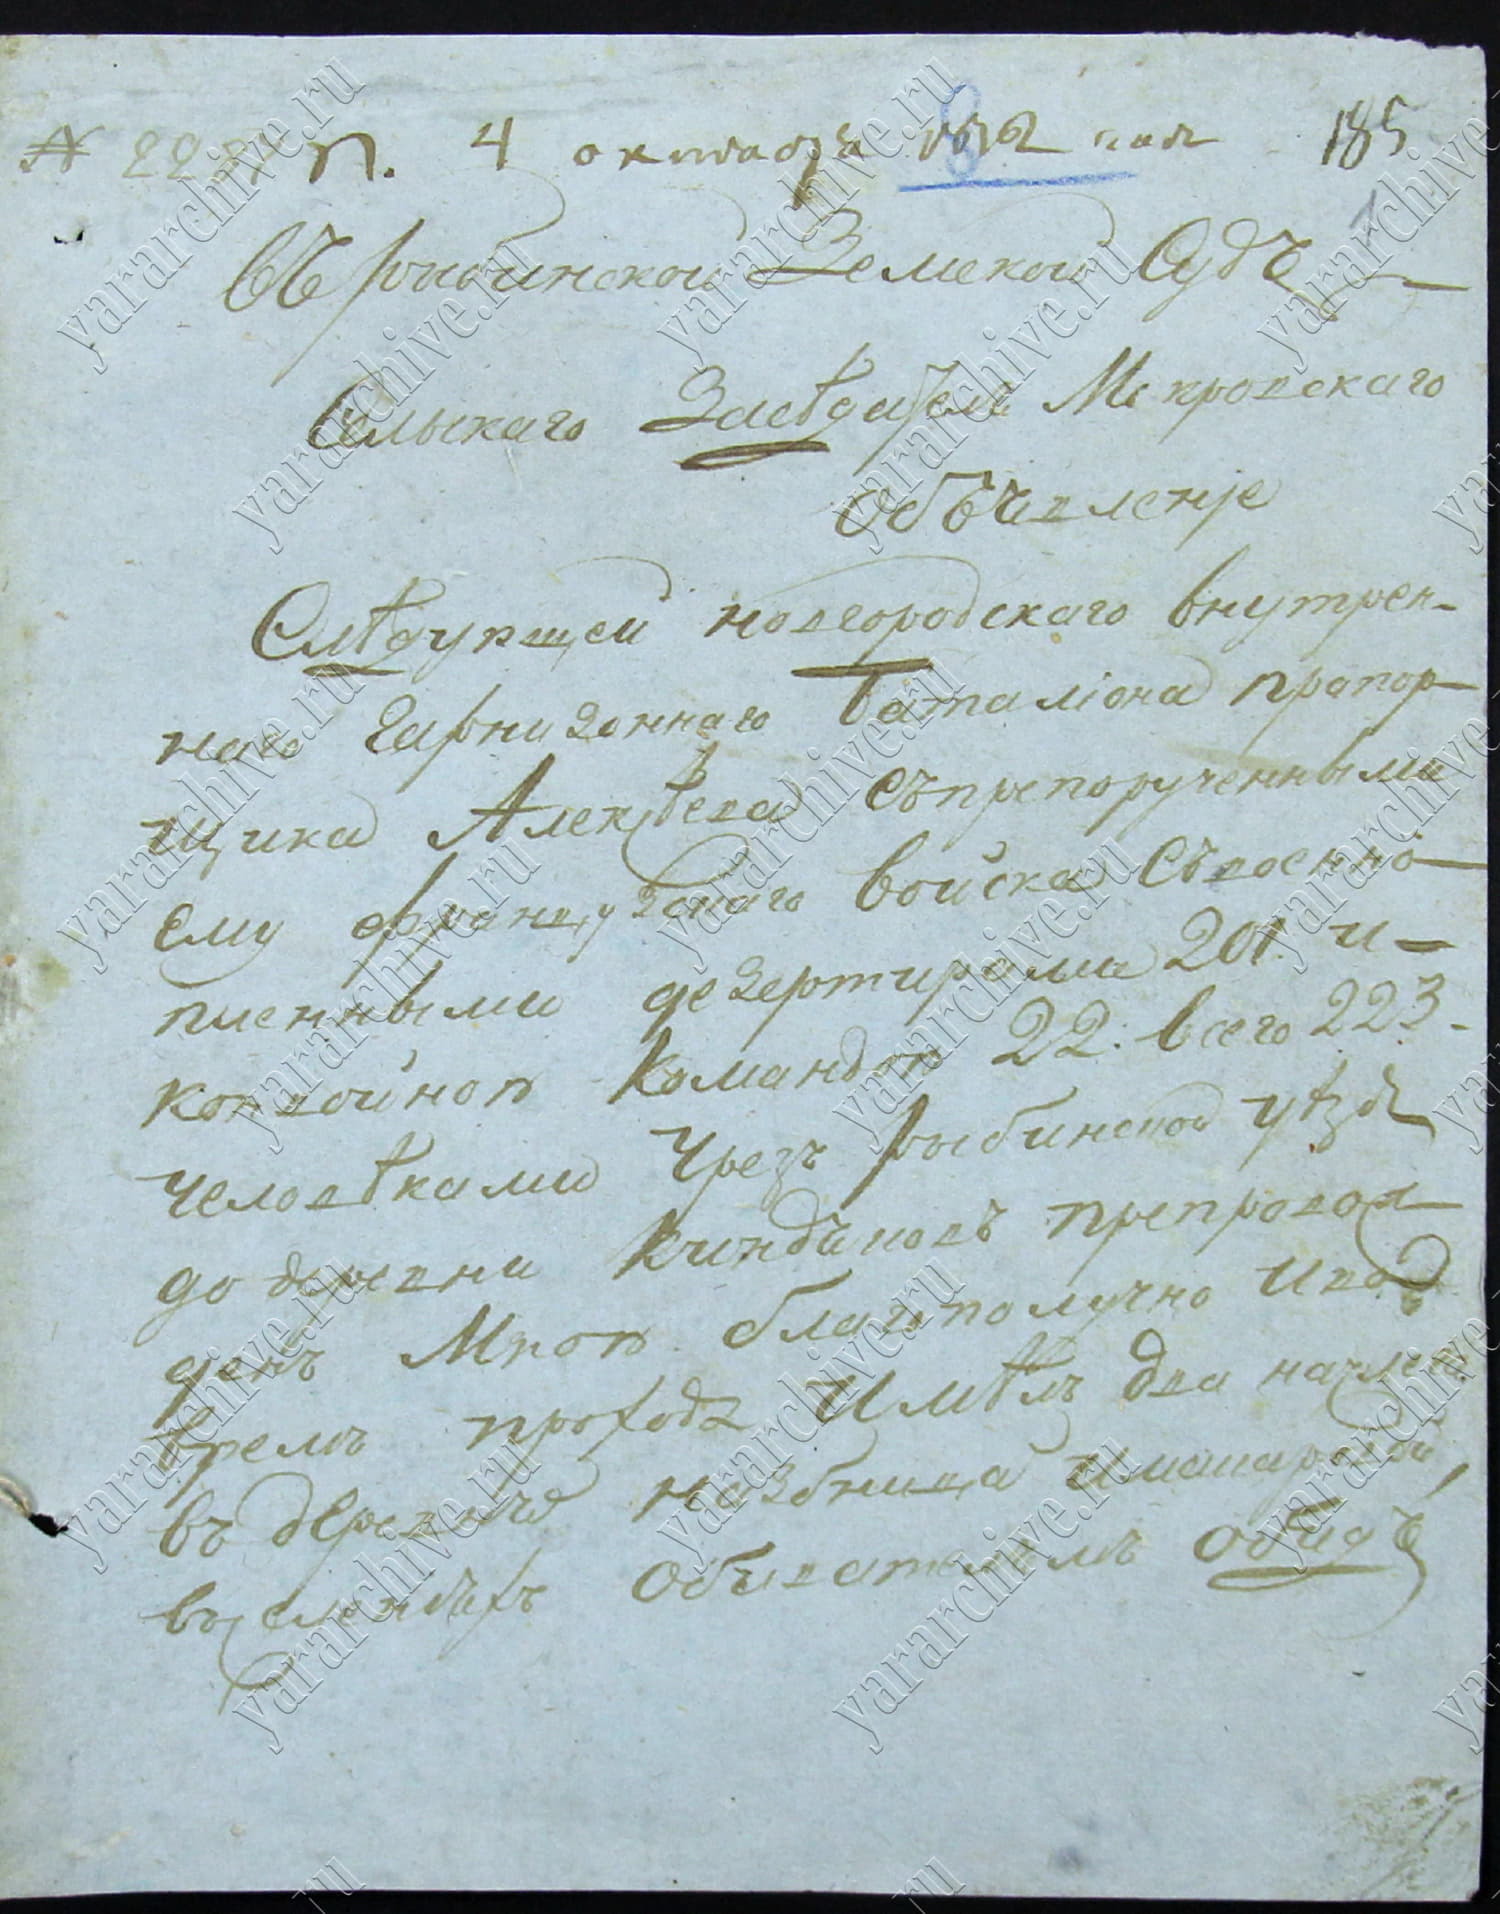 № п. 4 октабря 1812 года 185
въ рыбинской Земской Судъ
Сельскаго Заседателя Мокровскаго
объявленје
Следующей новгородскаго внутрен-
наго гарнизоннаго баталіона прапор-
щика Алексѣева съ препорученными
ему французскаго войска съвоенно-
пленными дезертирами 201. и-
конвойною командою 22. всего 223.
человѣками чрезъ рыбинской уѣздъ
до деревни препровож
денъ Мною благополучно и
прохода Имѣлъ два начлега
въ деревнѣ
въ селенияхъ обывателямъ обидъ